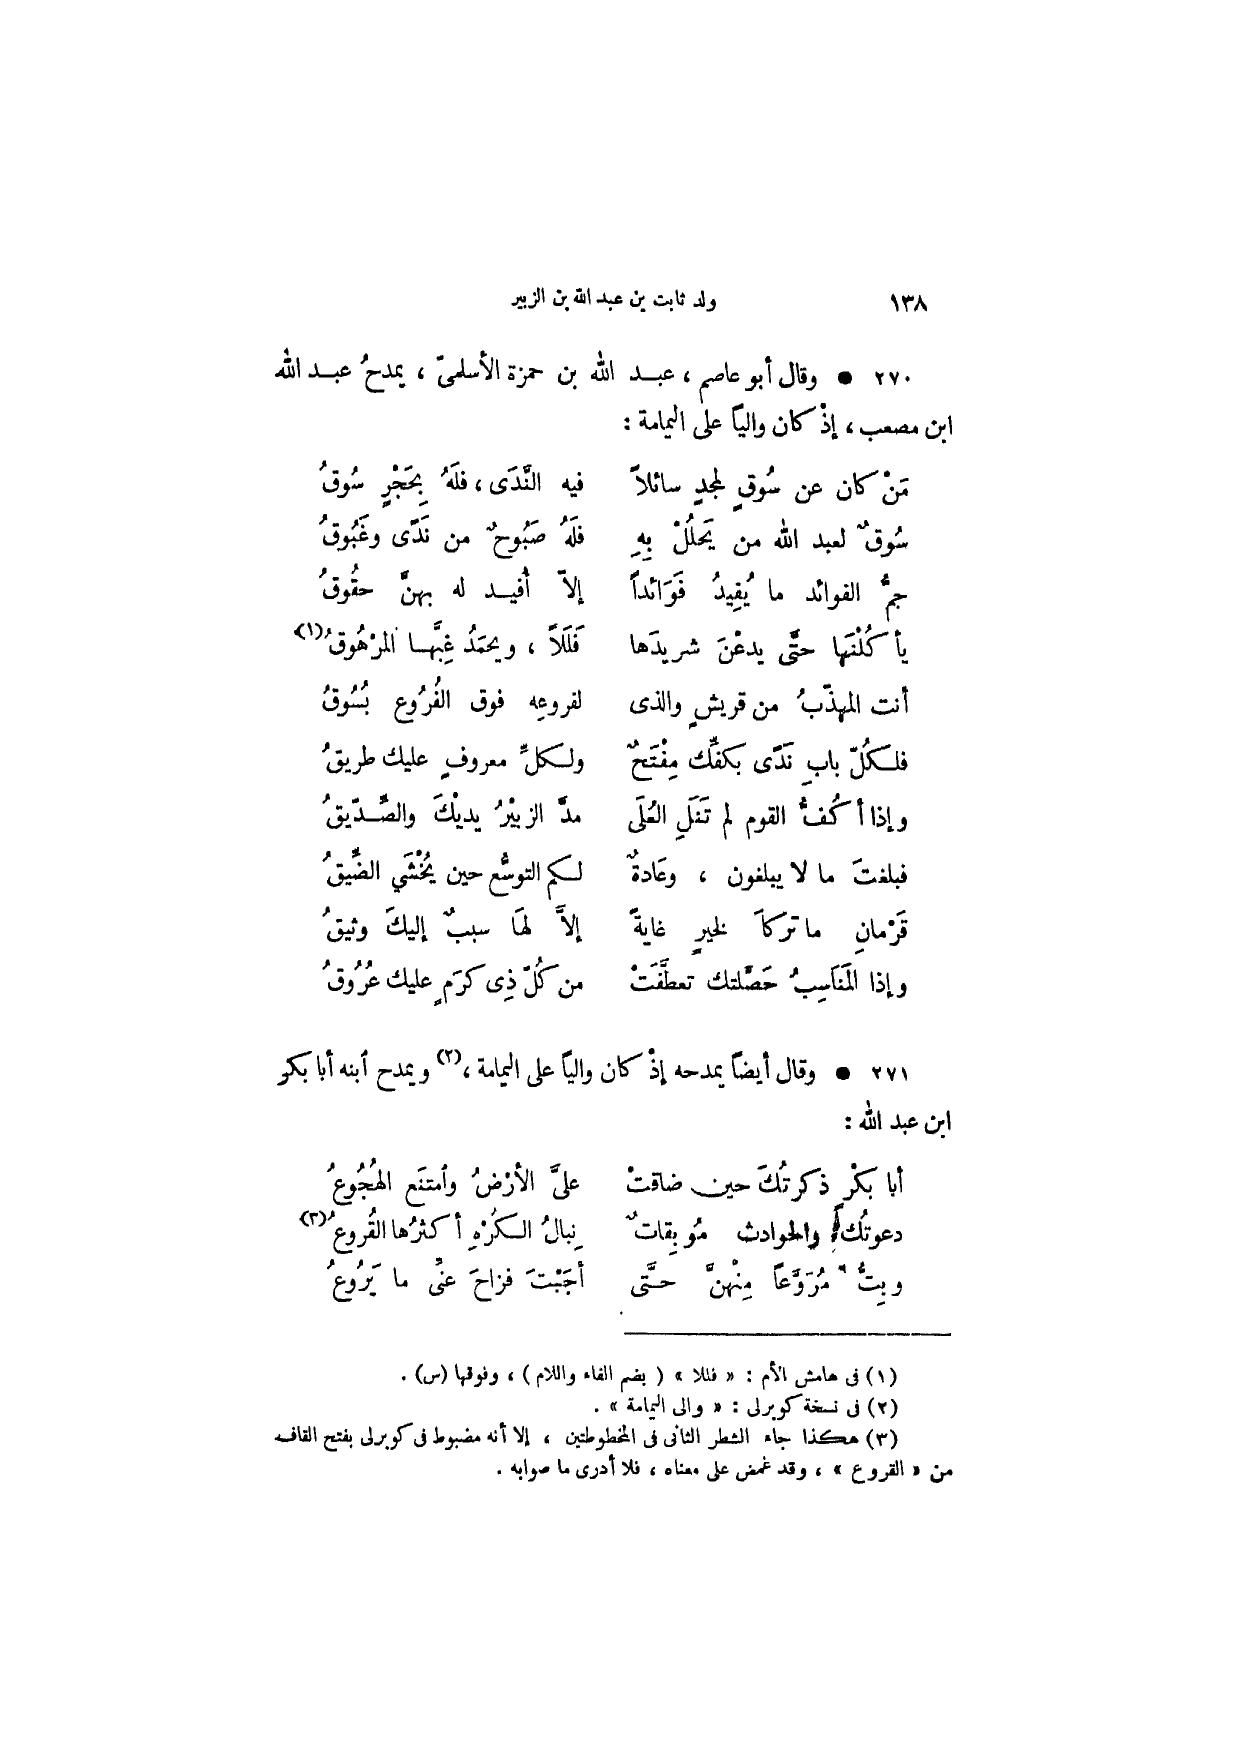 ١٣٨ ولد ثابت بن عبد الله بن الزبير
٢٧٠ • وقال أبو عاصم ، عبد الله بن حمزة الأسلمىّ ، يمدحُ عبد الله
ابن مصعب ، إذْ كان والياً على اليمامة :
مَنْ كان عن سُوقٍ لمجدٍ سائلاً فيه النَّدَى ، فلَهُ بِحَجْرٍ سُوقُ
سُوقٌ لعبد الله من يَحلُلْ بِهِ فلَهُ صَبُوحٌ من نَدًى وغَبُوقُ
جمُّ الفوائد ما يُفِيدُ فَوَائداً إلاّ أُفيد له بهنَّ حقُوقُ
يأكُلْنَها حتَّى يدعْنَ شريدَها فَلَلاً ، ويحمَدُ غِبَّها المرْهُوقُ(١)
أنت المهذّبُ من قريشٍ والذى لفروعِه فوق الفُرُوع بُسُوقُ
فلكلّ بابِ نَدًى بكفِّك مِفْتَحٌ ولكلِّ معروفٍ عليك طريقُ
وإذا أكُفُّ القوم لم تَنَلِ العُلَى مدَّ الزبيْرُ يديْكَ والصِّدّيقُ
فبلغتَ ما لا يبلغون ، وعَادةٌ لكم التوسُّع حين يُخْشَى الضِّيقُ
قَرْمانِ ما تركاَ لخيرٍ غايةً إلاَّ لهَا سببٌ إليكَ وثيقُ
وإذا المَنَاسِبُ حَصَّلتك تعطَّفَتْ من كُلّ ذِى كرَمٍ عليك عُرُوقُ
٢٧١ • وقال أيضاً يمدحه إذْ كان والياً على اليمامة ،(٢) ويمدح أبنه أبا بكر
ابن عبد الله :
أبا بكْرٍ ذكرتُكَ حين ضاقتْ علىَّ الأرْضُ وأمتنَع الهُجُوعُ
دعوتُك والحوادث مُوبِقاتٌ نِبالُ الكُرْهِ أكثرُها القُروعُ(٣)
وبِتُّ مُرَوَّعاً مِنْهنَّ حتَّى أجَبْتَ فزاحَ عنِّى ما يَرُوعُ
(١) فى هامش الأم : « فللا » ( بضم الفاء واللام ) ، وفوقها (س) .
(٢) فى نسخة كوبرلى : « والى اليمامة » .
(٣) هكذا جاء الشطر الثانى فى المخطوطتين ، إلا أنه مضبوط فى كوبرلى بفتح القاف
من « القروع » ، وقد غمض على معناه ، فلا أدرى ما صوابه .